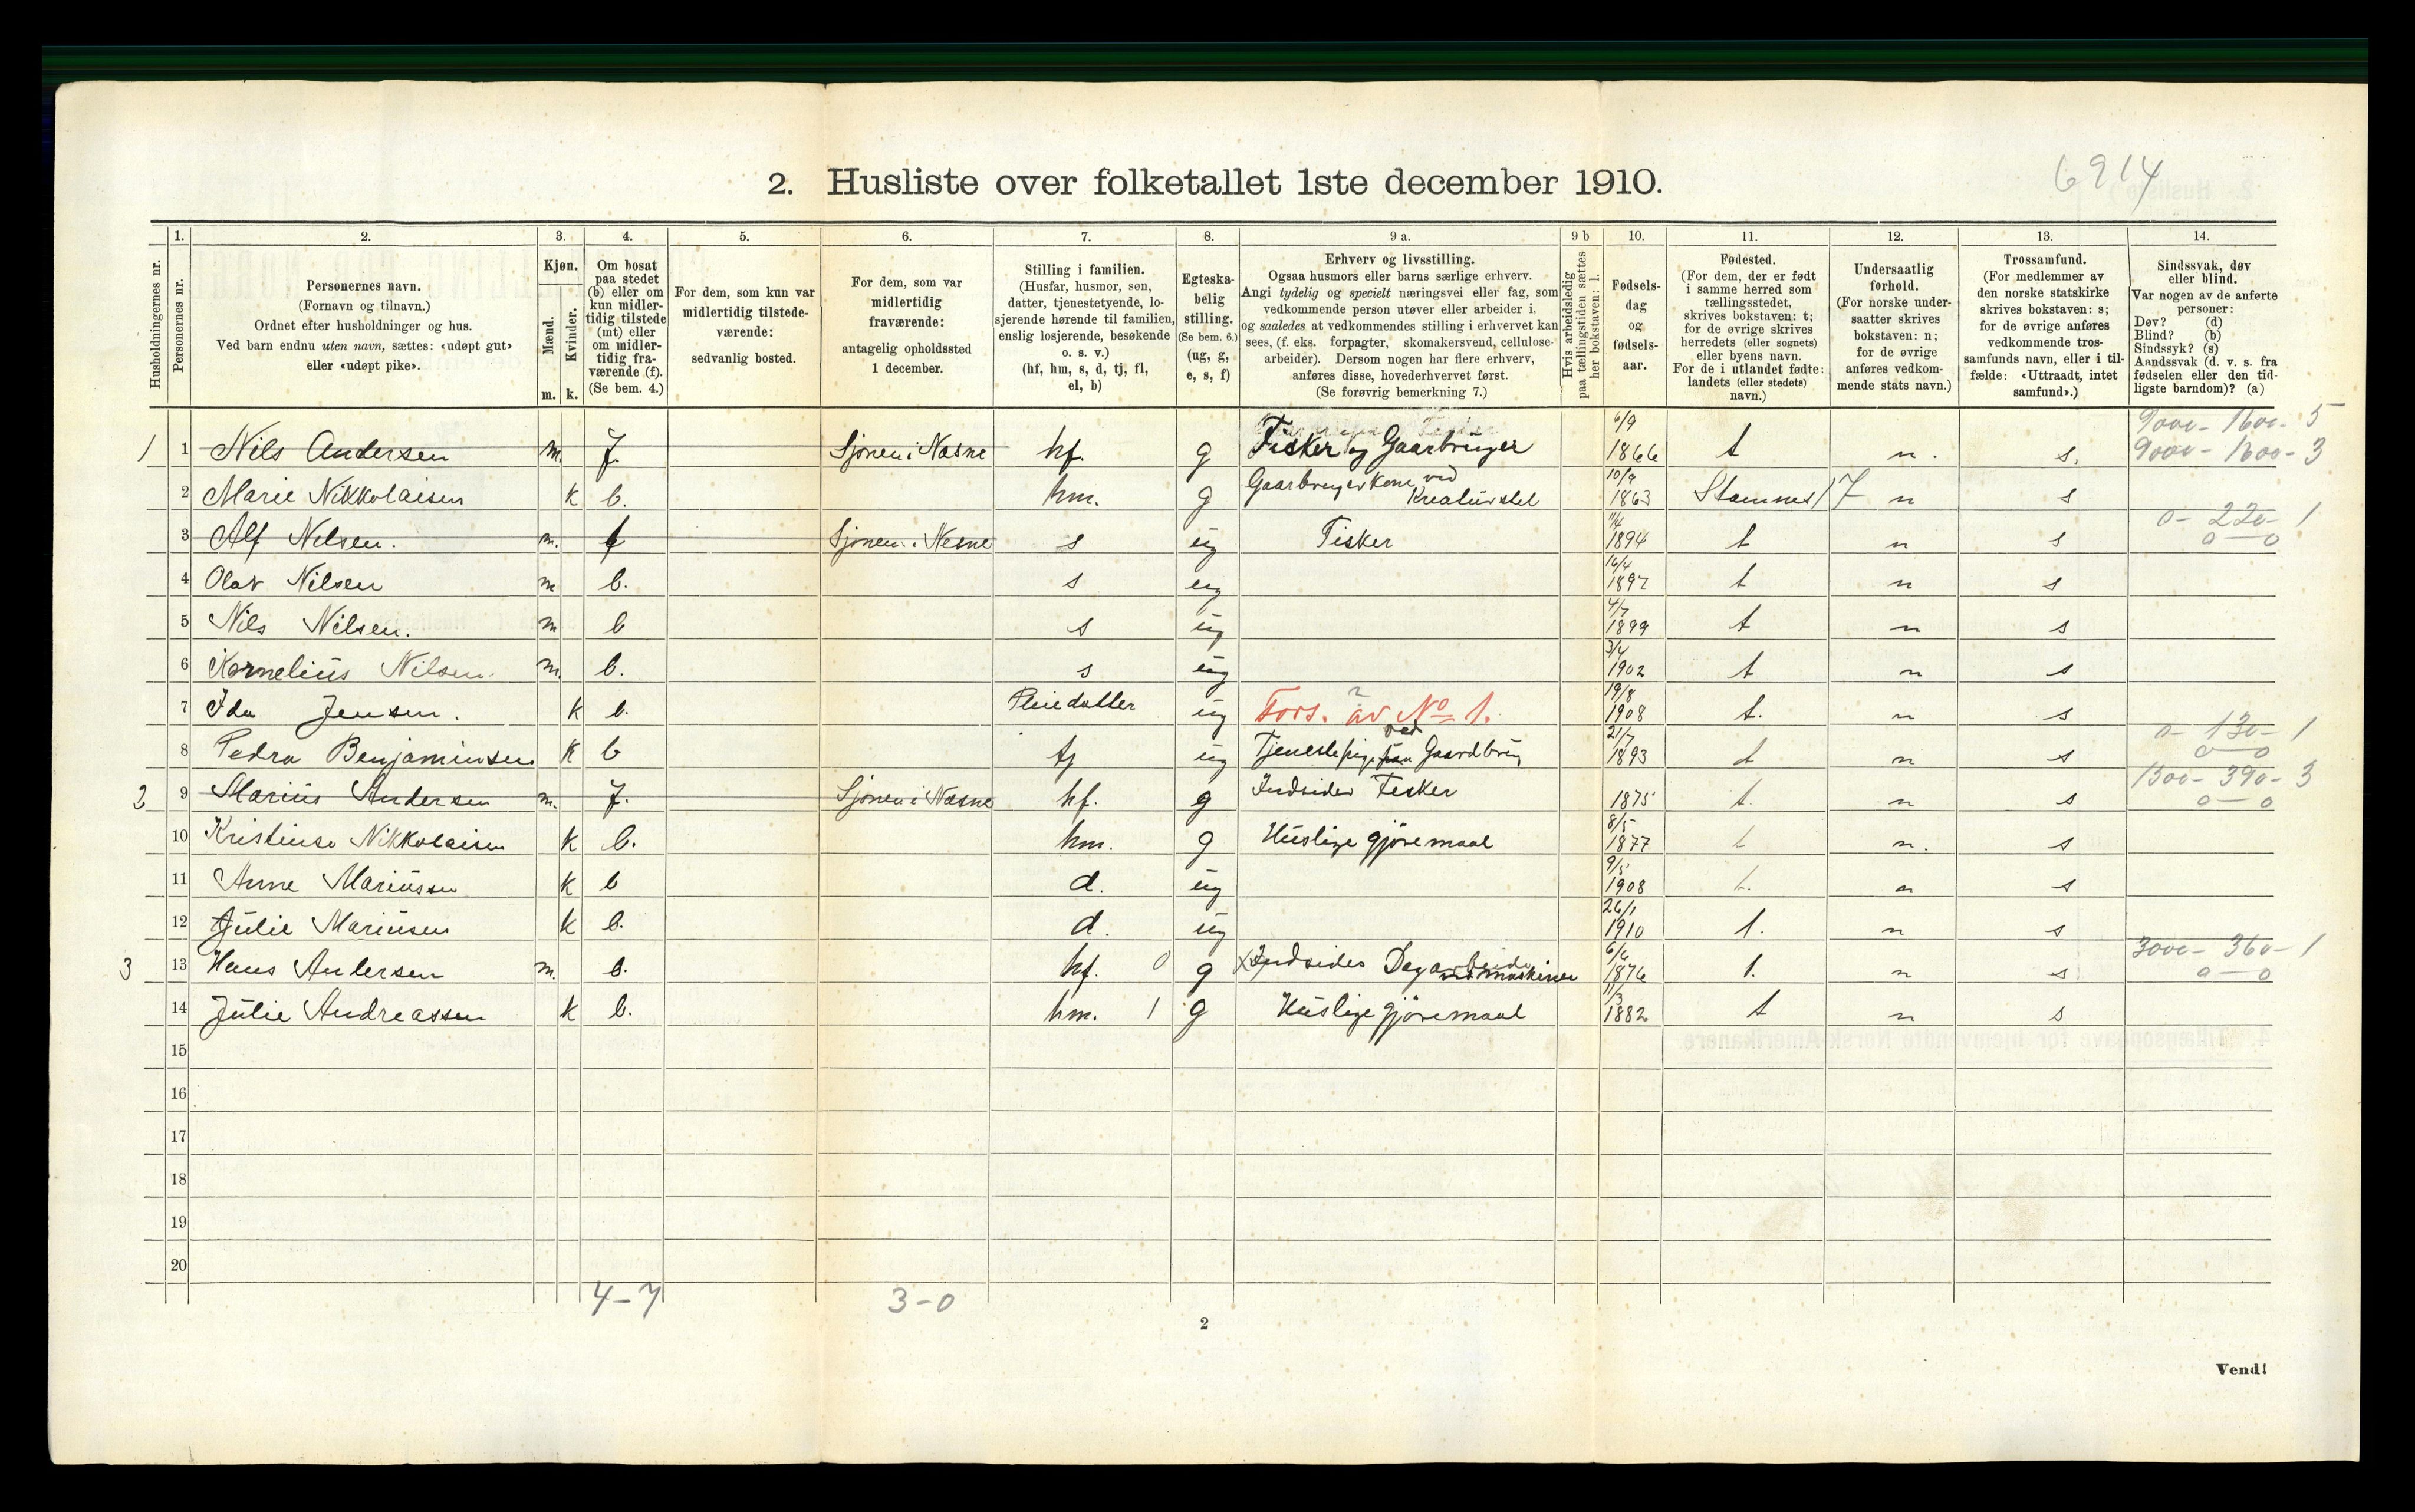 6914
2. Husliste over folketallet 1ste december 1910.
Husholdningernes nr.
1. Personernes nr.
2. Personernes navn.
(Fornavn og tilnavn.)
Ordnet efter husholdninger og hus.
Ved barn endnu uten navn, sættes: «udøpt gut»
eller «udøpt pike».
3. Kjøn.
Mænd. Kvinder.
m. k.
4. Om bosat
paa stedet
(b) eller om
kun midler-
tidig tilstede
(mt) eller
om midler-
tidig fra-
værende (f).
(Se bem. 4.)
5. For dem, som kun var
midlertidig tilstede-
værende:
sedvanlig bosted.
6. For dem, som var
midlertidig
fraværende:
antagelig opholdssted
1 december.
7. Stilling i familien.
(Husfar, husmor, søn,
datter, tjenestetyende, lo-
sjerende hørende til familien,
enslig losjerende, besøkende
o. s. v.)
(hf, hm, s, d, tj, fl,
el, b)
8. Egteska-
belig
stilling.
(Se bem. 6.)
(ug, g,
e, s, f)
9 a. Erhverv og livsstilling.
Ogsaa husmors eller barns særlige erhverv.
Angi tydelig og specielt næringsvei eller fag, som
vedkommende person utøver eller arbeider i,
og saaledes at vedkommendes stilling i erhvervet kan
sees, (f. eks. forpagter, skomakersvend, cellulose-
arbeider). Dersom nogen har flere erhverv,
anføres disse, hovederhvervet først.
(Se forøvrig bemerkning 7.)
9 b Hvis arbeidsledig
paa tællingstiden sættes
her bokstaven: l.
10. Fødsels-
dag
og
fødsels-
aar.
11. Fødested.
(For dem, der er født
i samme herred som
tællingsstedet,
skrives bokstaven: t;
for de øvrige skrives
herredets (eller sognets)
eller byens navn.
For de i utlandet fødte:
landets (eller stedets)
navn.)
12. Undersaatlig
forhold.
(For norske under-
saatter skrives
bokstaven: n;
for de øvrige
anføres vedkom-
mende stats navn.)
13. Trossamfund.
(For medlemmer av
den norske statskirke
skrives bokstaven: s;
for de øvrige anføres
vedkommende tros-
samfunds navn, eller i til-
fælde: «Uttraadt, intet
samfund».)
14. Sindssvak, døv
eller blind.
Var nogen av de anførte
personer:
Døv? (d)
Blind? (b)
Sindssyk? (s)
Aandssvak (d. v. s. fra
fødselen eller den tid-
ligste barndom)? (a)
1 1 Nils Andersen m. f. Sjonen i Nesne hf. g Fisker og Gaarbruger 6/9 1866 t n. s. 9000 - 1600 - 5
9000 - 1600 - 3
2 Marie Nikkolaisen k b. hm. g Gaarbrugerkone ved Kreaturstel 10/9 1863 Stamnes 17 n s
3 Alf Nilsen. m. f Sjonen i Nesne s ug Fisker 11/4 1894 t n s 0 - 220 - 1
0 - 0
4 Olav Nilsen m b. s ug 16/4 1897 t n s
5 Nils Nilsen. m b s ug 4/7 1899 t n s
6 Kornelius Nilsen. m. b. s ug 3/4 1902 t n s
7 Ida Jensen. k b. Pleiedatter ug Fors. av No 1. ? 19/8 1908 t. n s
8 Pedra Benjaminsen k b tj ug Tjenestepige ved Gaardbrug 21/7 1893 t n s 0 - 130 - 1
0 - 0
2 9 Marius Andersen m. f. Sjonen i Nesne hf. g Indsider Fisker 1875 t. n s 1300 - 390 - 3
0 - 0
10 Kristense Nikkolaisen k b. hm. g Huslige gjöremaal 8/5 1877 t n. s
11 Anne Mariussen k b d. ug 9/5 1908 t. n s
12 Julie Mariusen k b. d. ug 26/1 1910 t. n s
3 13 Hans Andersen m. b. hf. 0 g Indsides Dagarbeide ved maskiner 6/6 1876 t. n s 3000 - 360 - 1
0 - 0
14 Julie Andreassen k b. hm. 1 g Huslige gjöremaal 11/3 1882 t n s
15
16
17
18
19
20
4-7 3-0
2
Vend!